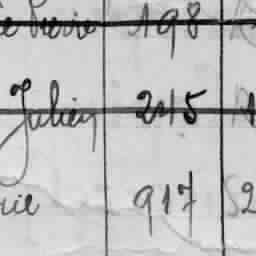 Pierre 198
Julien 245
rie 917 2